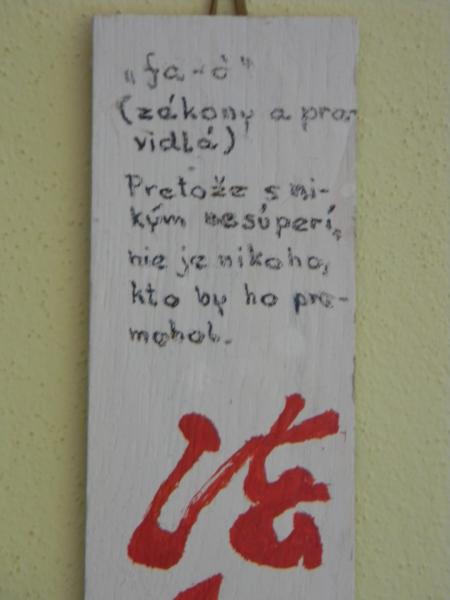 "fa-č"
(zákony a pra-
vidlá)
Pretože s ni-
kým nesúperí,
nie je nikoho,
kto by ho pre-
mohol.
法